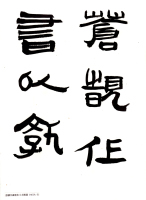 蒼頡作
書以教